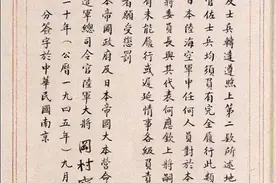 及士兵轉達遵照上第二款所述地
官佐士兵均須負有完全履行此類
日本陸海空軍中任何人員對於本
蔣委員長與其代表何應欽上將嗣
有未能履行或遲延情事各級負責
者願受懲罰
本帝國政府及日本帝國大本營命
遣軍總司令官陸軍大將 岡村
十年(公曆一九四五年)九月
分簽字於中華民國南京